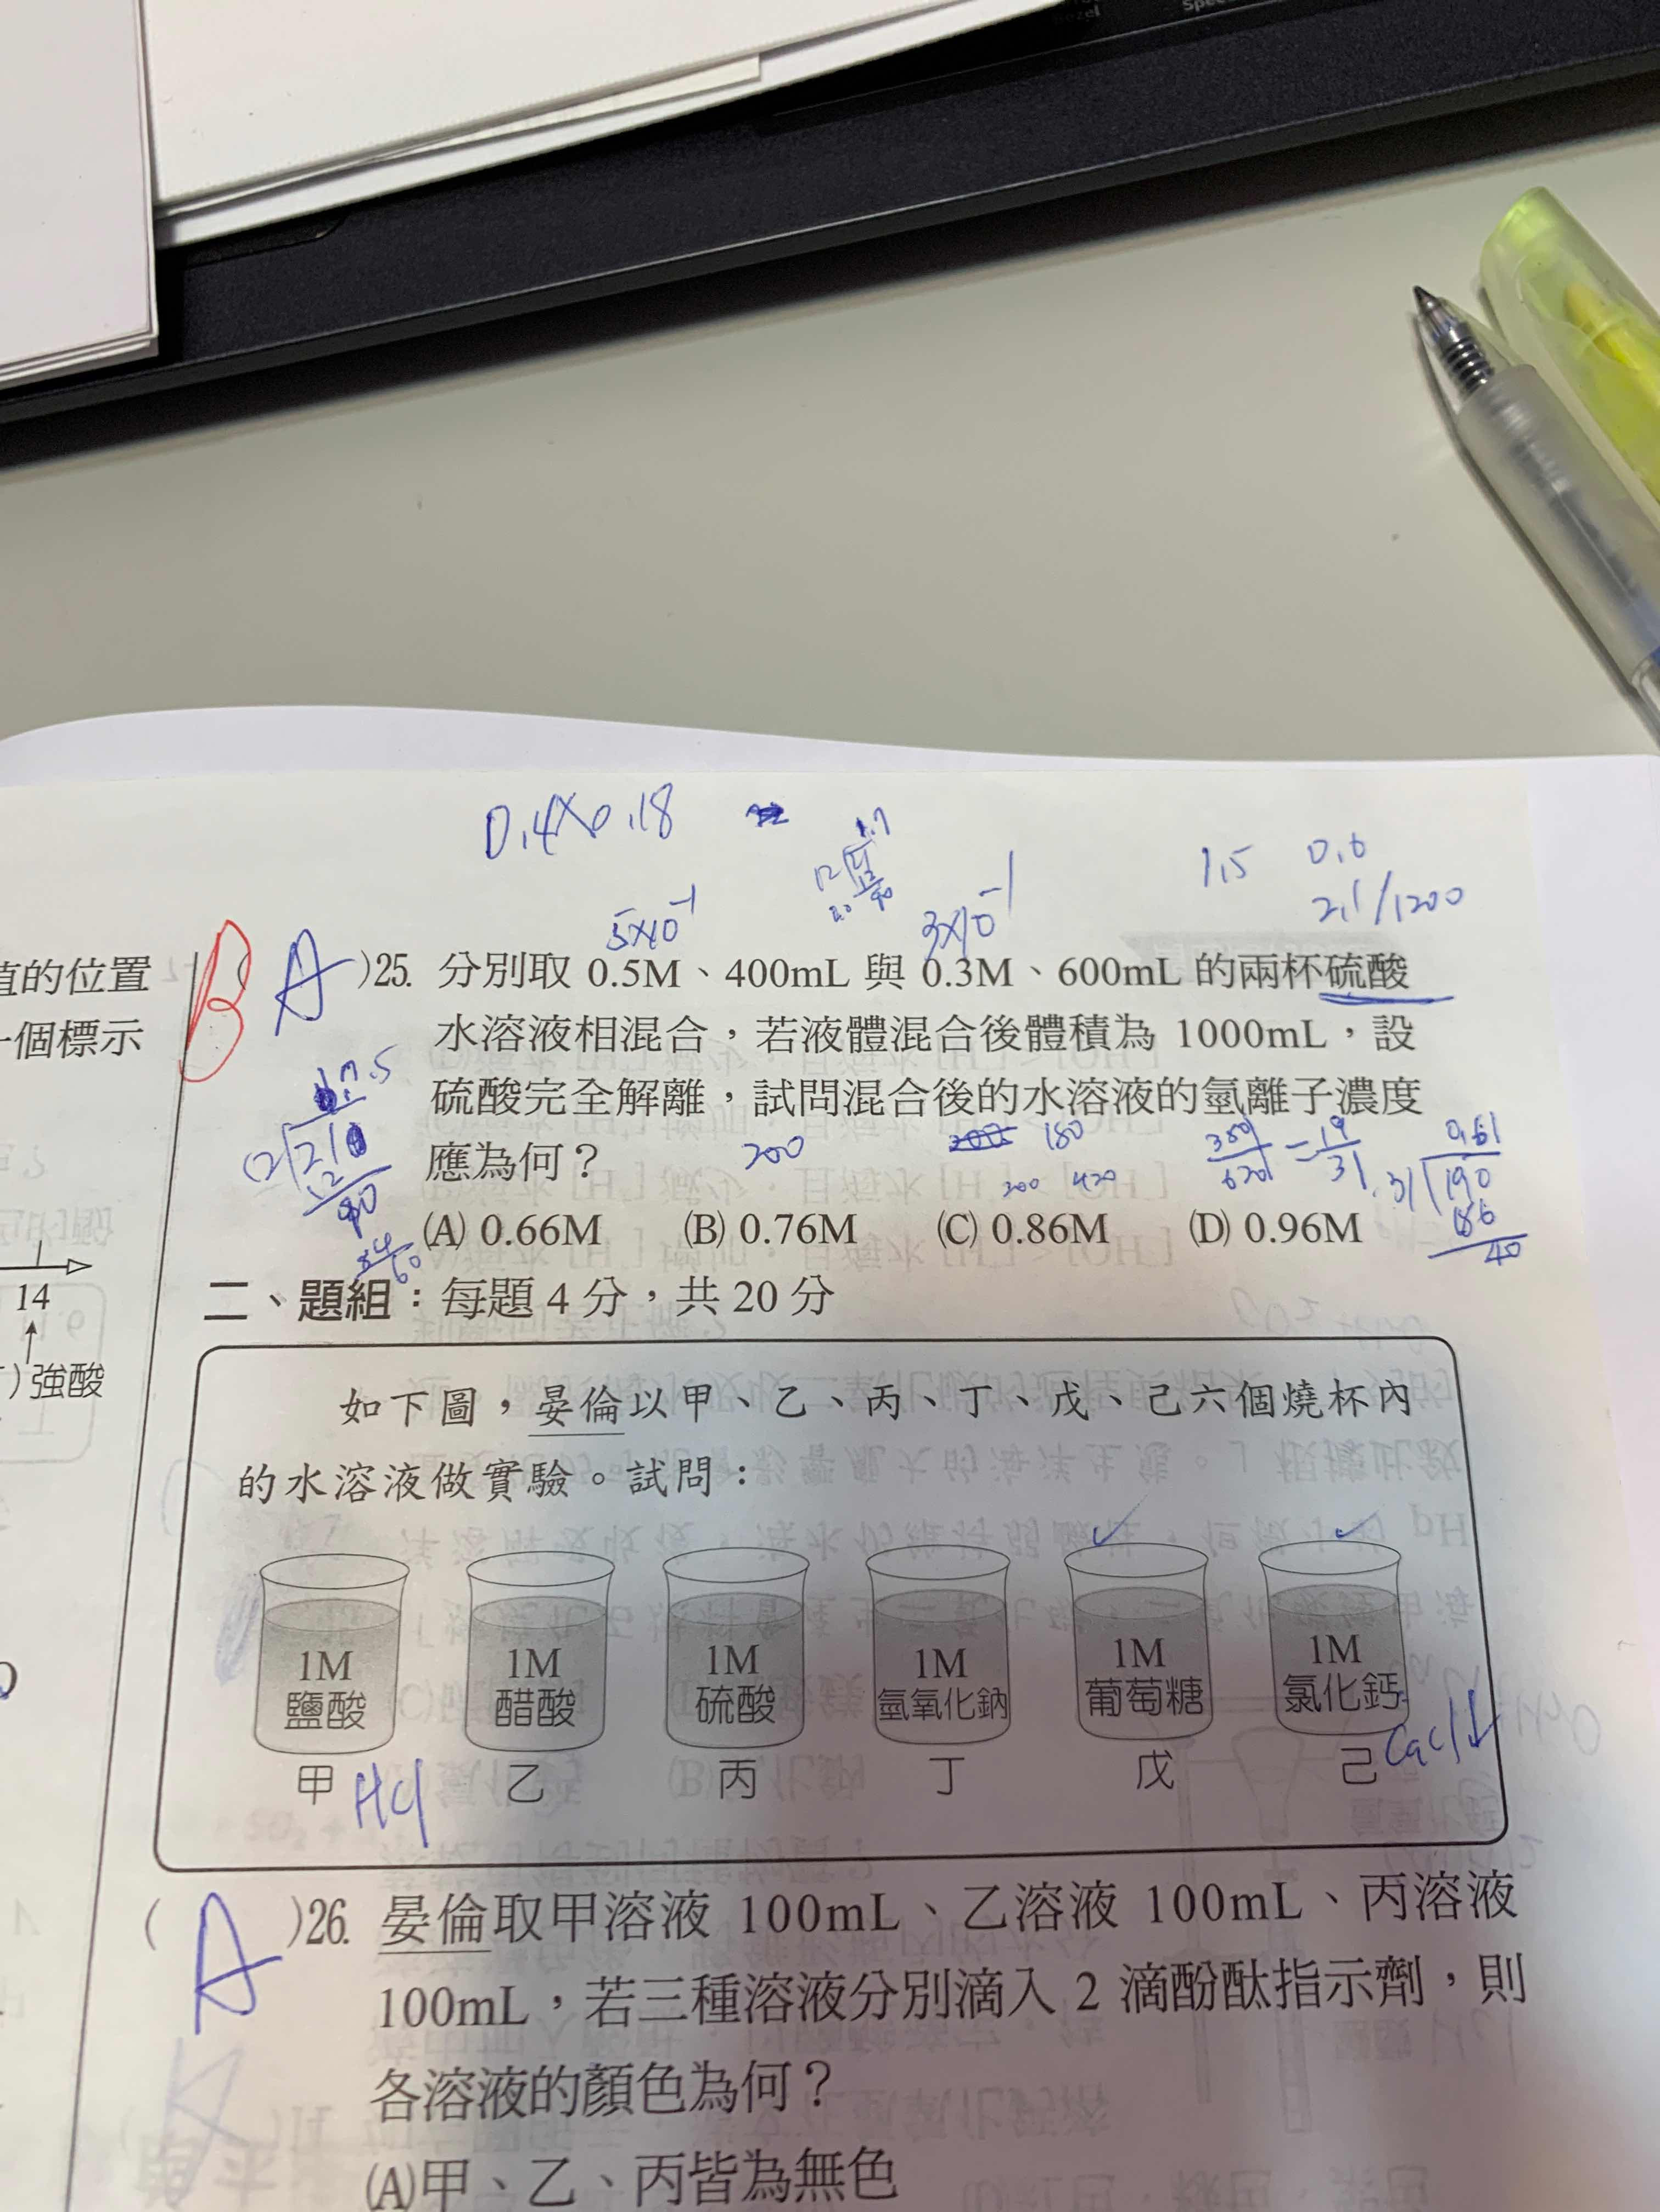 0.4×0.18
1.7
1.5 0.6
2.1/1200
5×10⁻¹
3×10⁻¹
值的位置
一個標示
14
強酸
B
A )25. 分別取 0.5M、400mL 與 0.3M、600mL 的兩杯硫酸
水溶液相混合，若液體混合後體積為 1000mL，設
硫酸完全解離，試問混合後的水溶液的氫離子濃度
應為何？
200
180
200 420
380/620 = 19/31
0.61
31 190
186
40
(A) 0.66M (B) 0.76M (C) 0.86M (D) 0.96M
二、題組：每題 4 分，共 20 分
如下圖，晏倫以甲、乙、丙、丁、戊、己六個燒杯內
的水溶液做實驗。試問：
1M 1M 1M 1M 1M 1M
鹽酸 醋酸 硫酸 氫氧化鈉 葡萄糖 氯化鈣
甲 乙 丙 丁 戊 己
HCl
CaCl↓
( A )26. 晏倫取甲溶液 100mL、乙溶液 100mL、丙溶液
100mL，若三種溶液分別滴入 2 滴酚酞指示劑，則
各溶液的顏色為何？
(A)甲、乙、丙皆為無色